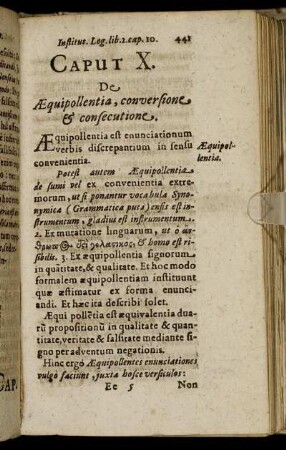 Institut. Log. lib. 2. cap. 10. 441
CAPUT X.
De
Æquipollentia, conversione
& consecutione.
Æquipollentia est enunciationum
verbis discrepantium in sensu
convenientia.
Æquipol-
lentia.
Potest autem Æquipollentia
desumi vel ex convenientia extre-
morum, ut si ponantur vocabula Syno-
nymica (Grammatica puta) ensis est in-
strumentum, gladius est instrumentum.
2. Ex mutatione linguarum, ut ὁ ἄν-
θρωπος ἐστι γελαστικὸς, & homo est ri-
sibilis. 3. Ex æquipollentia signorum
in quātitate, & qualitate. Et hoc modo
formalem æquipollentiam instituunt
quæ æstimatur ex forma enunci-
andi. Et hæc ita describi solet.
Æqui pollētia est æquivalentia dua-
rū propositionū in qualitate & quan-
titate, veritate & falsitate mediante
signo per adventum negationis.
Hinc ergò Æquipollentes enunciationes
vulgò faciunt, juxta hosce versiculos:
Ee 5 Non
CAP.